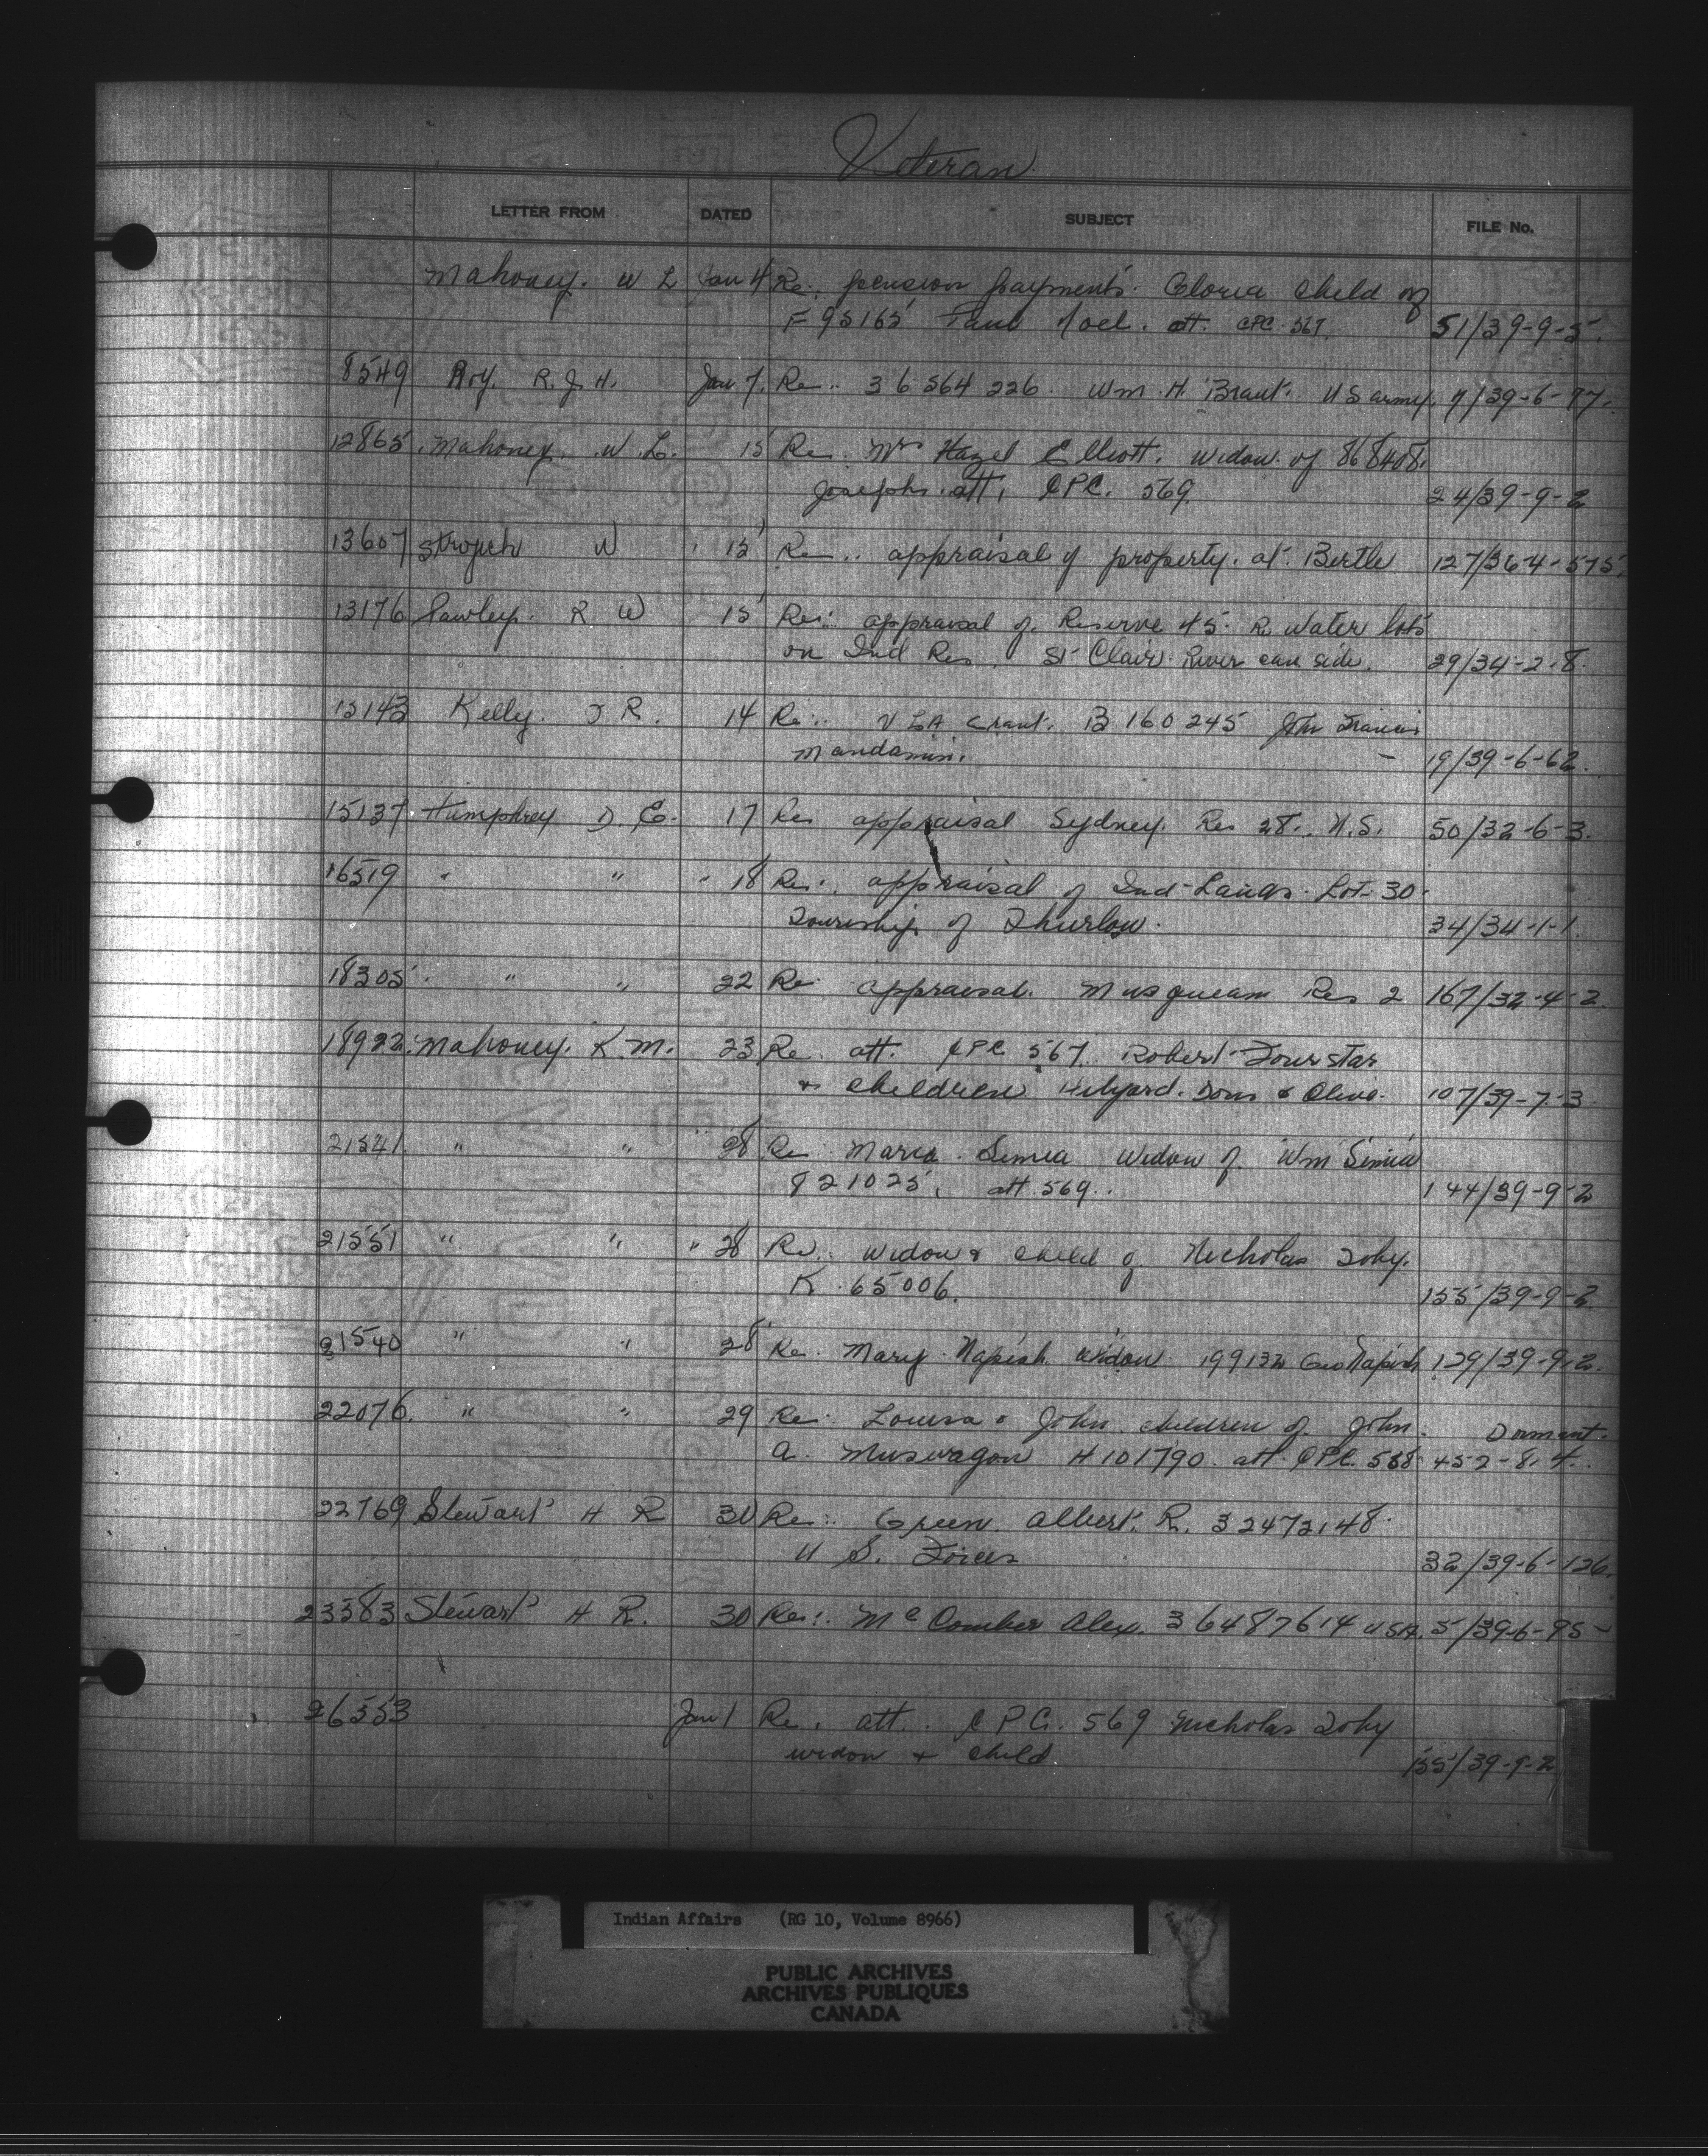 Veteran
LETTER FROM DATED SUBJECT FILE No.
Mahoney. W L Jan 4 Re: pension payments. Gloria child of
F 95165 Paul Noel. att. CPC. 567. 51/39-9-5.
8549 Roy. R. J. H. Jan 7. Re.. 36 564 226. Wm. H. Brant. U S army. 7/39-6-97.
12865. Mahoney. W. L. 15 Re. Mrs Hazel Elliott. widow of 868408.
Joseph. att. CPC. 569. 24/39-9-2
13607 W 15 Re.. appraisal of property. at. Birtle 127/36-4-575.
13176 R W 15 Re:. appraisal of. Reserve 45. R. Water lots
on Ind Res. St Clair River side. 29/34-2-8.
15143 Kelly. J R. 14 Re:. V L A Grant. B 160 245 John Francis
Mandamin. — 19/39-6-62.
15137. Humphrey D. E. 17 Re appraisal Sydney. Res 28.. N.S. 50/32-6-3.
16519 " " " 18 Re:. appraisal of Ind-Lands. Lot-30.
Township of Thurlow. 34/34-1-1.
18305. " " 22 Re: appraisal. Musqueam Res 2 167/32-4-2.
18922. Mahoney. K. M. 23 Re. att. CPC 567. Robert Fourstar
& children Hilyard. Doris & Olive. 107/39-7-3.
21541. " " " 28 Re. Maria. Simia widow of. Wm Simia
821025, att 569.. 144/39-9-2
21551 " " " 28 Re.: widow & child of Nicholas Toby.
K. 65006. 155/39-9-2.
21540 " " 28 Re. Mary. Napish widow. 199132 Geo Napish 129/39-9-2.
22076. " " 29 Re: Louisa & John. children of. John. Dormant.
A. Muswagon H 101790. att. CPC. 568. 452-8.4.
22769 Stewart H R 30 Re:. Green. Albert. R. 32472148.
U S. Forces 32/39-6-126.
23383 Stewart H R. 30 Re:. McComber Alex. 36487614 USA. 5/39-6-95-
26553 Jan 1 Re. att.. CPC. 569 Nicholas Toby
widow & child. 155/39-9-2
Indian Affairs (RG 10, Volume 8966)
PUBLIC ARCHIVES
ARCHIVES PUBLIQUES
CANADA